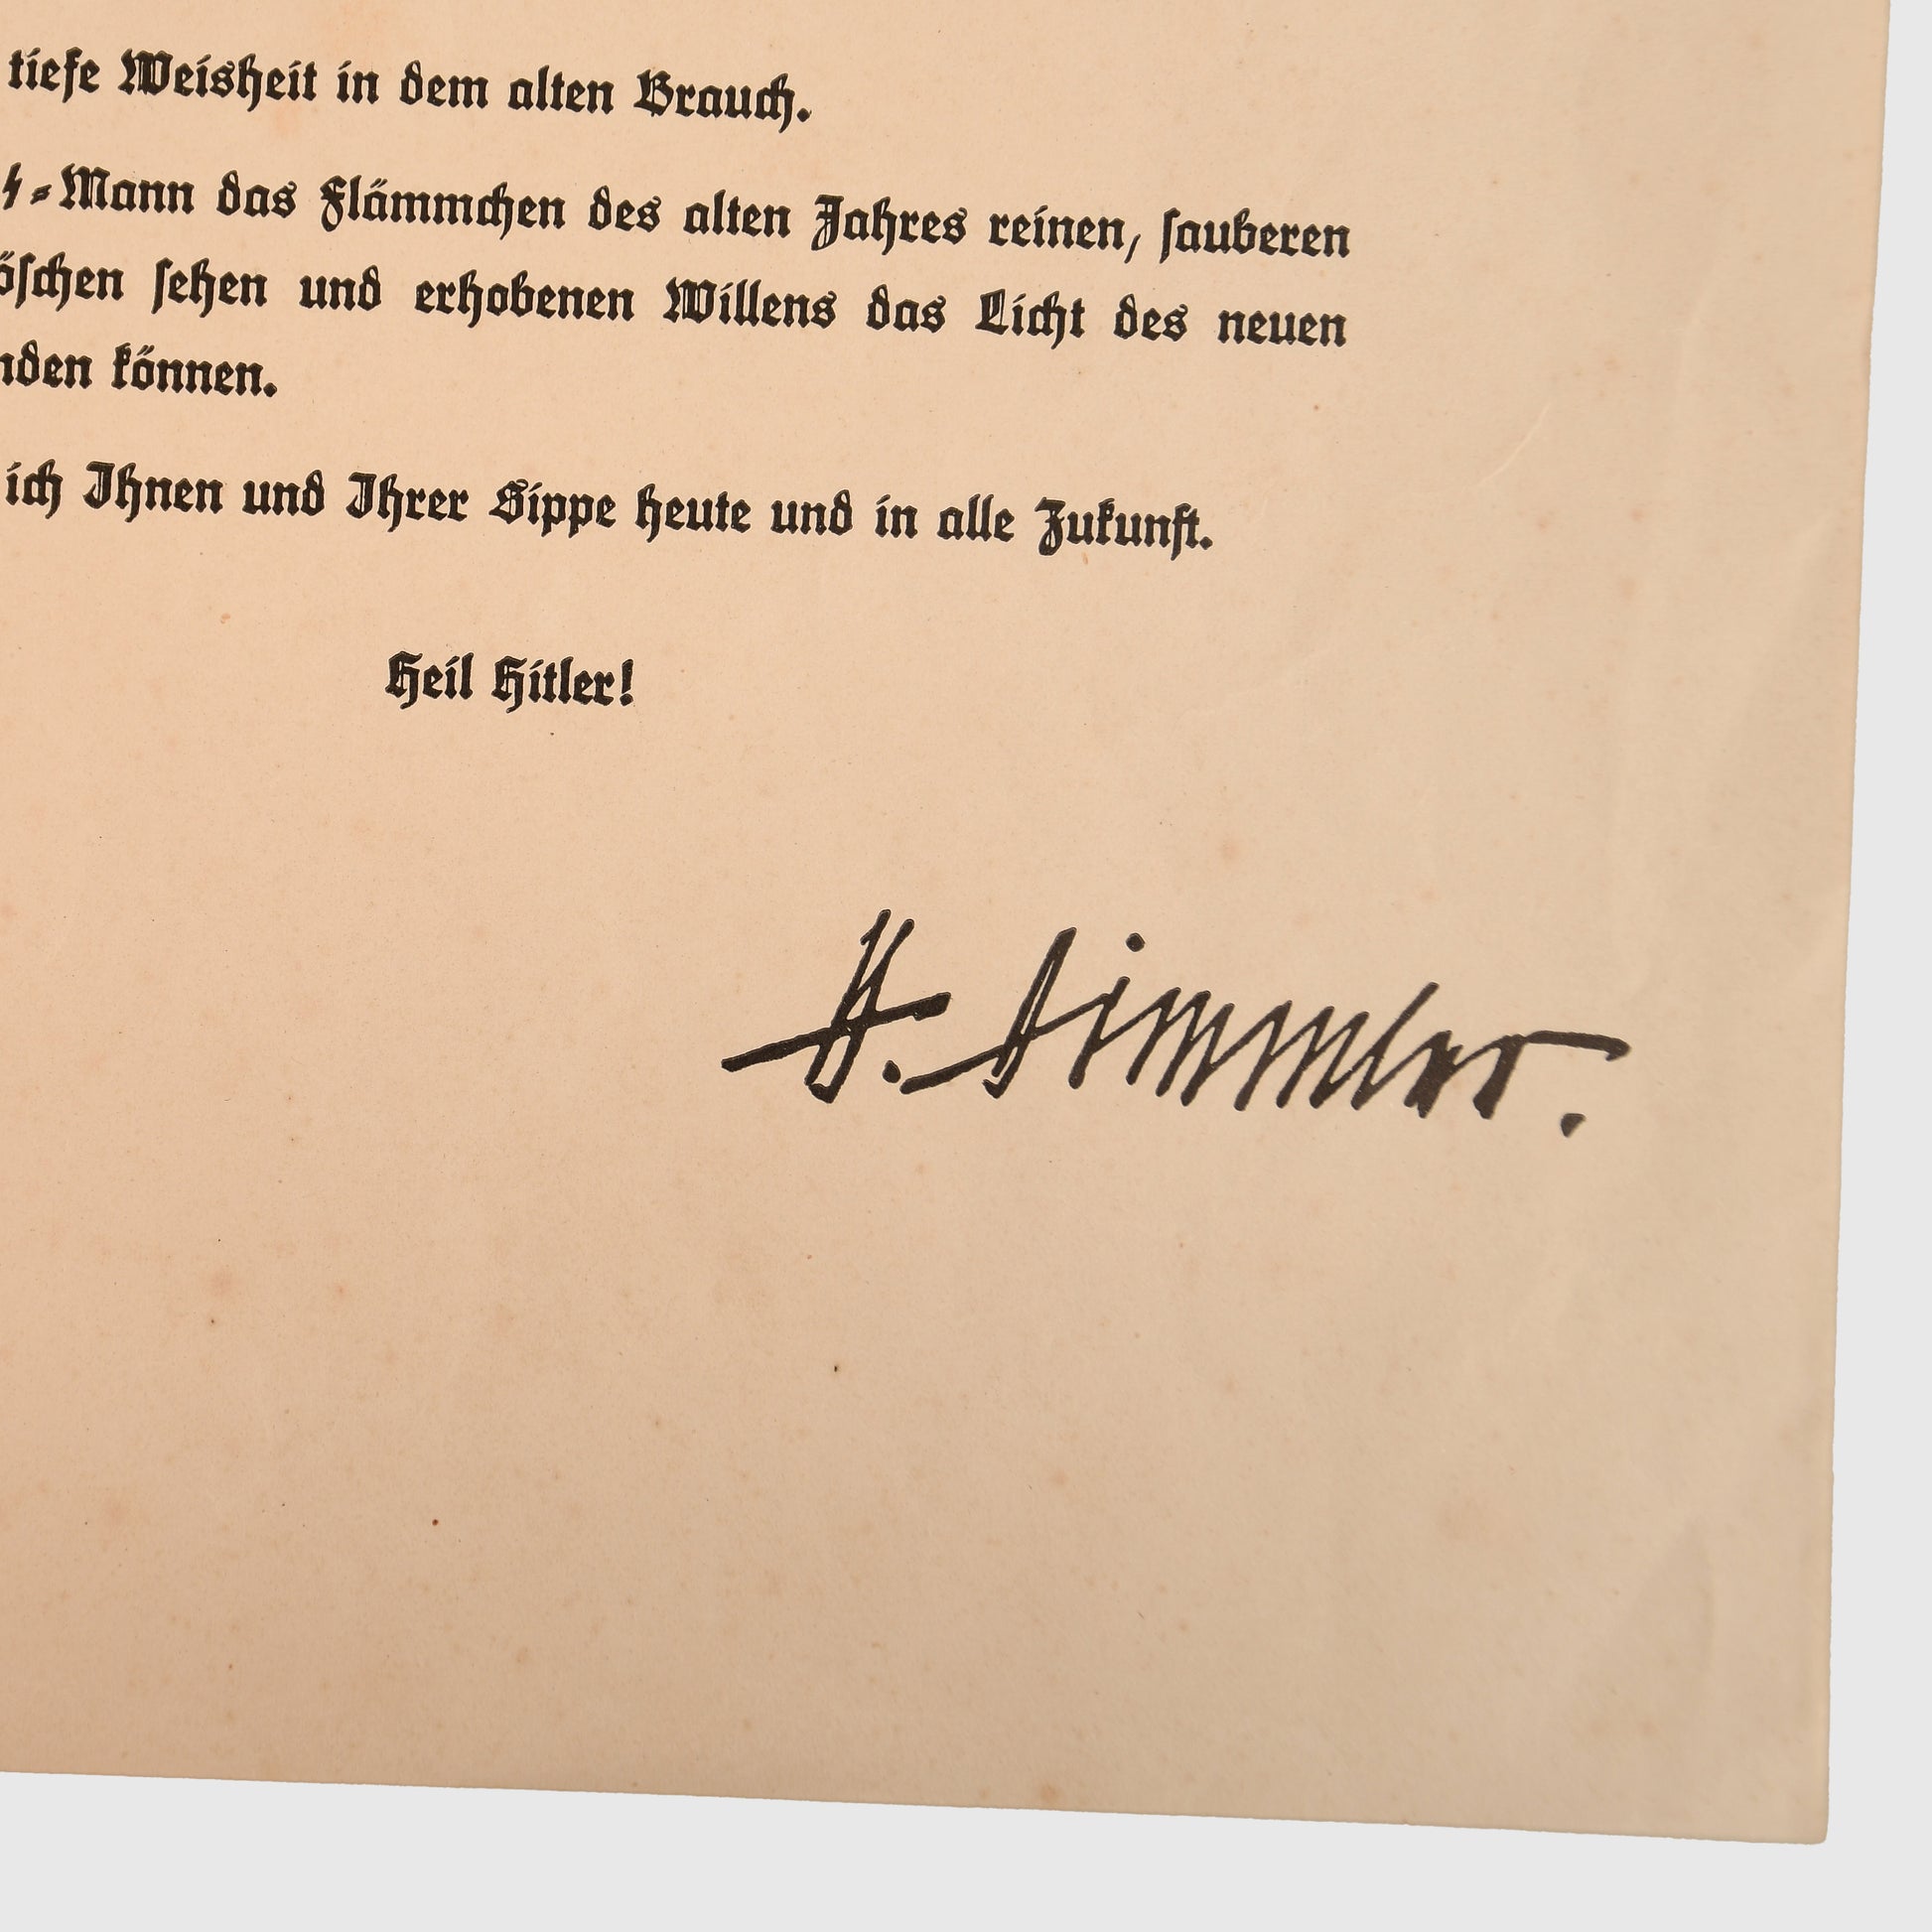 tiefe Weisheit in dem alten Brauch.
ᛋ-Mann das Flämmchen des alten Jahres reinen, sauberen
öschen sehen und erhobenen Willens das Licht des neuen
nden können.
ich Ihnen und Ihrer Sippe heute und in alle Zukunft.
Heil Hitler!
H. Himmler.